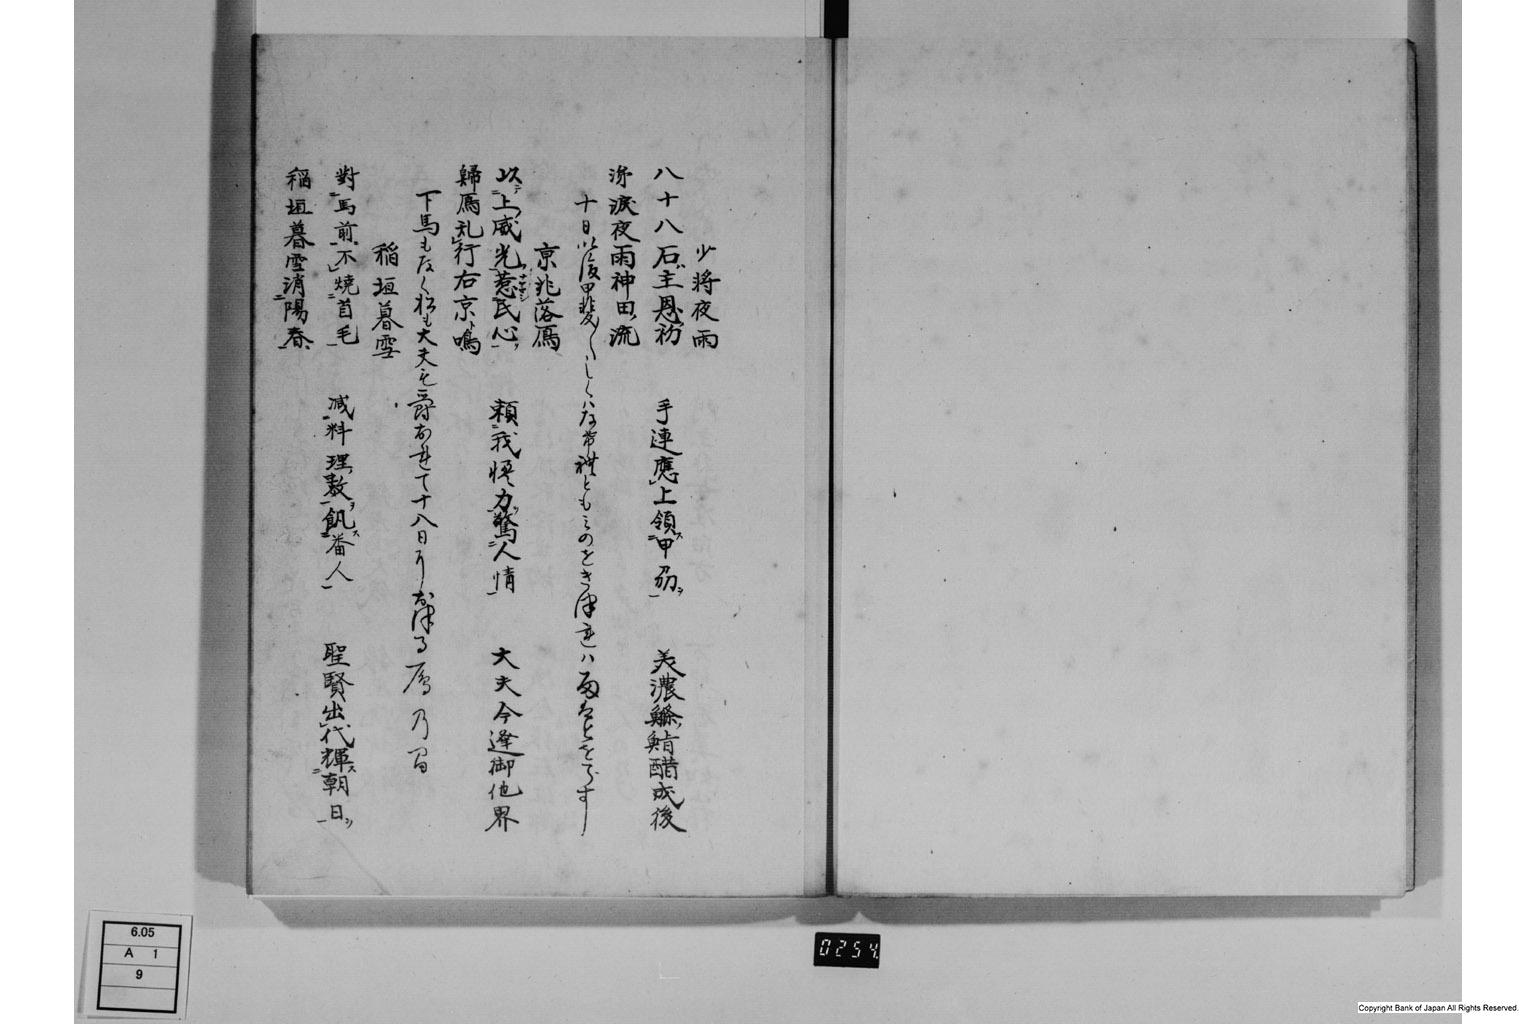 少将夜雨
八十八石主恩初 手連應上領甲刕 美濃鯀鮨醋成後
涕涙夜雨神田流
十日以後甲斐〱しくハな常禮ともみのをき津連ハ雨をとをらす
京兆落鴈
以上威光惹民心 頼我怪力驚人情 大夫今逢御他界
歸鴈乱行右京鳴
下馬もなく松も大夫も爵おれて十八日に
稲垣暮雪
對馬前不焼首毛 减料理数飢番人 聖賢出代輝朝日
稲垣暮雪消陽春
6.05
A 1
9
0254
Copyright Bank of Japan All Rights Reserved.